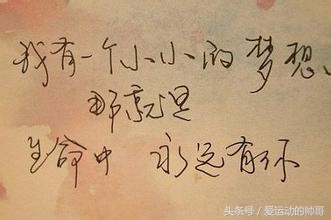 我有一个小小的梦想、
那就是
生命中 永远有你
头条号/爱运动的帅哥